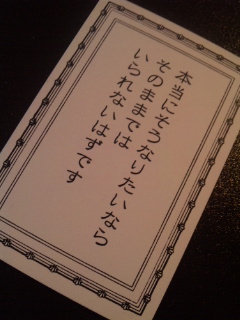 本当にそうなりたいなら
そのままでは
いられないはずです